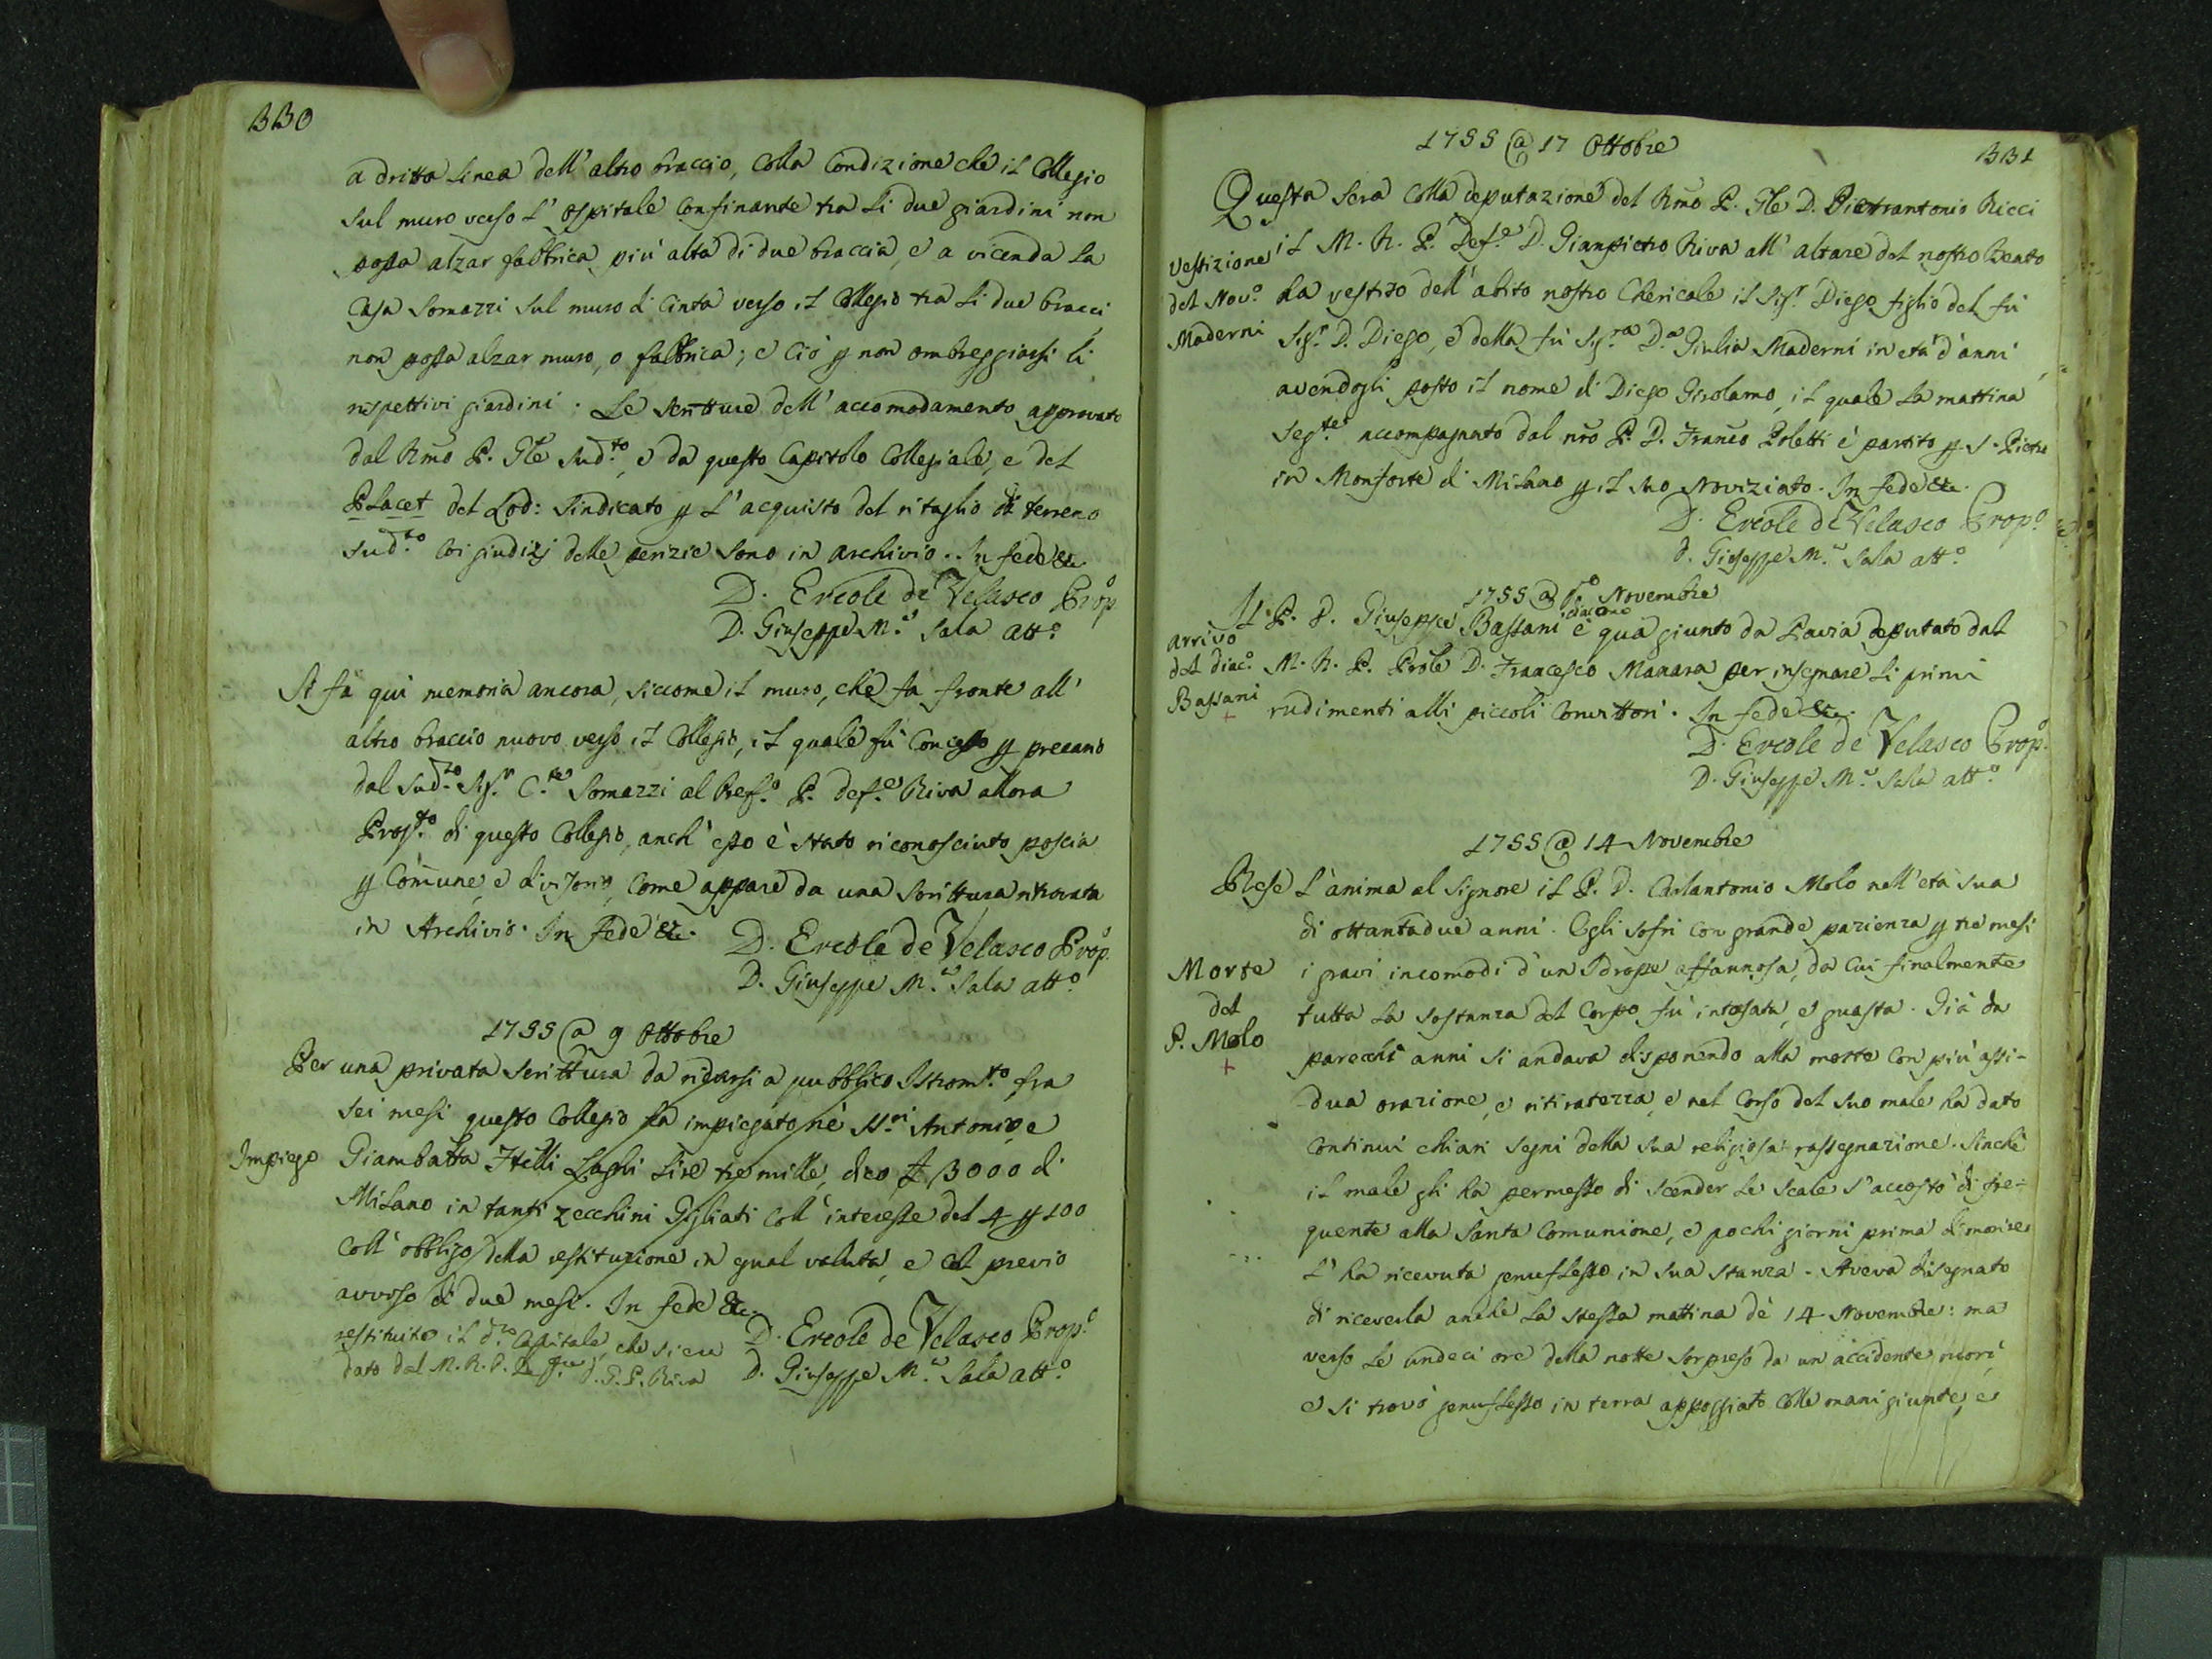 330
a dritta linea dell' altro braccio, colla condizione che il Collegio
sul muro verso l' ospitale confinante tra li due giardini non
possa alzar fabbrica più alta di due braccia, e a vicenda la
Casa Somazzi sul muro di cinta verso il Collegio tra li due bracci
non possa alzar muro, o fabbrica; e ciò p non ombreggiarsi li
rispettivi giardini. Le scritture dell' accomodamento approvato
dal Rmo P. Gle Sud.to, e da questo Capitolo Collegiale, e del
Placet del Lod: Sindicato p l' acquisto del ritaglio di terreno
sud.to coi giudizj delle perizie sono in archivio. In fede &c.
D. Ercole de Velasco Prop.o
D. Giuseppe M.a Sala att.o
Si fa quì memoria ancora, siccome il muro, che fa fronte all'
altro braccio nuovo verso il Collegio, il quale fù concesso p precario
dal Sud.to Sig.r C.te Somazzi al Pref.o P. Def.e Riva allora
Prop.to di questo Collegio, anch' esso è stato riconosciuto poscia
p Comune, e divisorio, come appare da una scrittura ritrovata
in Archivio. In fede &c.
D. Ercole de Velasco Prop.o
D. Giuseppe M.a Sala att.o
1755 @ 9 Ottobre
Per una privata scrittura da ridursi a pubblico Istrom.to fra
sei mesi questo Collegio ha impiegato nè SS.ri Antonio, e
Impiego
Giambatta Ftelli Laghi lire tremille, dico £ 3000 di
Milano in tanti zecchini Gigliati coll' interesse del 4 p 100
coll' obbligo della restituzione in egual valuta, e col previo
avviso di due mesi. In fede &c.
restituito il d.to Capitale, che si era
dato dal M. R. P. D. G. P. Riva
D. Ercole de Velasco Prop.o
D. Giuseppe M.a Sala att.o
331
1755 @ 17 Ottobre
Questa sera colla deputazione del Rmo P. Gle D. Pietrantonio Ricci
Vestizione
del Nov.o
Maderni
il M. R. P. Def.e D. Giampietro Riva all' altare del nostro Beato
ha vestito dell' abito nostro Chericale il Sig.r Diego figlio del fù
Sig.r D. Diego, e della fù Sig.ra D.a Giulia Maderni in età d' anni
avendogli posto il nome di Diego Girolamo, il quale la mattina
seg.te accompagnato dal nro P. D. Franco Poletti è partito p S. Pietro
in Monforte di Milano p il suo Noviziato. In fede &c.
D. Ercole de Velasco Prop.o
D. Giuseppe M.a Sala att.o
1755 @ p.o Novembre
arrivo
del diac.o
Bassani
+
Il P. D. Giuseppe Bassani diacono è quà giunto da Pavia deputato dal
M. R. P. Prole D. Francesco Manara per insegnare li primi
rudimenti alli piccoli convittori. In fede &c.
D. Ercole de Velasco Prop.o
D. Giuseppe M.a Sala att.o
1755 @ 14 Novembre
Rese l' anima al Signore il P. D. Carlantonio Molo nell' età sua
di ottantadue anni. Egli sofrì con grande pazienza p tre mesi
Morte
del
P. Molo
+
i gravi incomodi d' un Idrope affannosa, da cui finalmente
tutta la sostanza del Corpo fù intasata, e guasta. Già da
parecchi anni si andava disponendo alla morte con più assi-
dua orazione, e ritiratezza, e nel corso del suo male ha dato
continui chiari segni della sua religiosa rassegnazione. Sinchè
il male gli ha permesso di scender le scale s' accostò di fre-
quente alla Santa Comunione, e pochi giorni prima di morire
l' ha ricevuta genuflesso in sua stanza. Aveva disegnato
di riceverla anche la stessa mattina dè 14 Novembre: ma
verso le undeci ore della notte sorpreso da un' accidente morì,
e si trovò genuflesso in terra appoggiato colle mani giunte, e